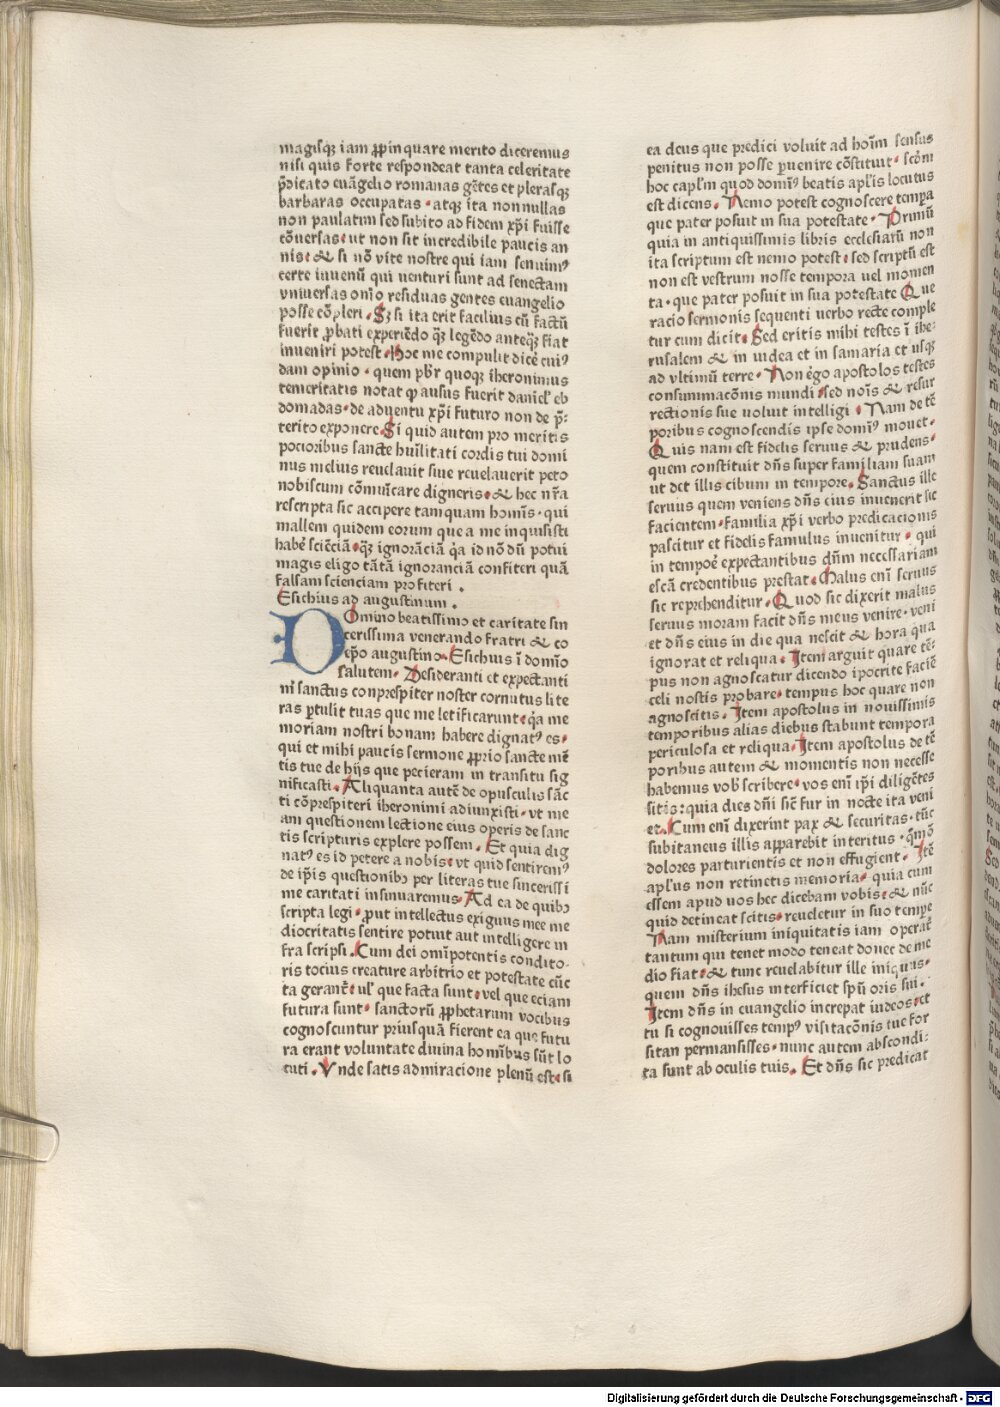 magisqꝫ iam ꝓpinquare merito diceremus
nisi quis forte respondeat tanta celeritate
p̄dicato euāgelio romanas gētes et plerasqꝫ
barbaras occupatas · atqꝫ ita nonnullas
non paulatim sed subito ad fidem xp̄i fuisse
cōuersas · ut non sit incredibile paucis an
nis · & si nō vite nostre qui iam senuimꝰ
certe iuuenū qui venturi sunt ad senectam
vniuersas om̄o residuas gentes euangelio
posse cōpleri . Sꝫ si ita erit facilius cū factū
fuerit ꝓbati experiēdo qꝫ̄ legēdo anteqꝫ̄ fiat
inueniri potest · Hoc me compulit dicē cuiꝰ
dam opinio · quem pb̄r quoqꝫ iheronimus
temeritatis notat ꝙ ausus fuerit danieł eb
domadas · de aduentu xp̄i futuro non de p̄
terito exponere . Si quid autem pro meritis
pocioribus sancte hūilitati cordis tui domi
nus melius reuelauit siue reuelauerit peto
nobiscum cōmūicare digneris · & hec nr̄a
rescripta sic accipere tamquam homīs · qui
mallem quidem eorum que a me inquisisti
habē sciēciā · qꝫ ignorāciā q̓a id nō dū potui
magis eligo tātā ignoranciā confiteri quā
falsam scienciam profiteri .
Esichius ad augustinum .
Domino beatissimo et caritate sin
cerissima venerando fratri & co
ep̄o augustino · Esichius ī domīo
salutem · Desideranti et expectanti
m̄ sanctus conprespiter noster cornutus lite
ras ꝑtulit tuas que me letificarunt · q̓a me
moriam nostri bonam habere dignatꝰ es ·
qui et mihi paucis sermone ꝓprio sancte mē
tis tue de hijs que pecieram in transitu sig
nificasti . Aliquanta autē de opusculis sāc
ti cōprespiteri iheronimi adiunxisti · vt me
am questionem lectione eius operis de sanc
tis scripturis explere possem . Et quia dig
natꝰ es id petere a nobis · vt quid sentiremꝰ
de ip̄is questionibꝫ per literas tue sincerissi
me caritati insinuaremus · Ad ea de quibꝫ
scripta legi · ꝓut intellectus exiguus mee me
diocritatis sentire potuit aut intelligere in
fra scripsi . Cum dei om̄ipotentis condito-
ris tocius creature arbitrio et potestate cūc
ta gerant̄ · uł que facta sunt · vel que eciam
futura sunt · sanctorū ꝓphetarum vocibus
cognoscuntur priusquā fierent ea que futu
ra erant voluntate diuina homībus sūt lo
cuti . Vnde satis admiracione plenū est · si
ea deus que predici voluit ad hoīm sensus
penitus non posse ꝑuenire cōstituit · scōm
hoc capłm quod domīꝰ beatis apłis locutus
est dicens . Nemo potest cognoscere tempa
que pater posuit in sua potestate · Primū
quia in antiquissimis libris ecclesiarū non
ita scriptum est nemo potest · sed scriptū est
non est vestrum nosse tempora uel momen
ta · que pater posuit in sua potestate Que
racio sermonis sequenti uerbo recte comple
tur cum dicit · Sed eritis mihi testes ī ihe-
rusalem & in iudea et in samaria et usqꝫ
ad vltimū terre · Non ergo apostolos testes
consummacōnis mundi · sed noīs & resur
rectionis sue voluit intelligi · Nam de tē
poribus cognoscendis ipse domīꝰ mouet ·
Quis nam est fidelis seruus & prudens ·
quem constituit dn̄s super familiam suam
ut det illis cibum in tempore . Sanctus ille
seruus quem veniens dn̄s eius inuenerit sic
facientem · familia xp̄i verbo predicacionis
pascitur et fidelis famulus inuenitur · qui
in tempoē expectantibus dn̄m necessariam
escā credentibus prestat . Malus enī seruus
sic reprehenditur . Quod sic dixerit malus
seruus moram facit dn̄s meus venire · veni
et dn̄s eius in die qua nescit & hora qua
ignorat et reliqua . Item arguit quare tē-
pus non agnoscatur dicendo ipocrite faciē
celi nostis probare · tempus hoc quare non
agnoscitis . Item apostolus in nouissimis
temporibus alias diebus stabunt tempora
periculosa et reliqua . Item apostolus de tē
poribus autem & momentis non necesse
habemus vob̄ scribere · vos enī ip̄i diligētes
sitis : quia dies dn̄i sic̄ fur in nocte ita veni
et . Cum enī dixerint pax & securitas · tūc
subitaneus illis apparebit interitus · q̄mō
dolores parturientis et non effugient . Itē
apłus non retinetis memoria · quia cum
essem apud uos hec dicebam vobis · & nūc
quid detineat scitis · reueletur in suo tempe
Nam misterium iniquitatis iam operat̄
tantum qui tenet modo teneat donec de me
dio fiat · & tunc reuelabitur ille iniquus ·
quem dn̄s ihesus interficiet spū oris sui .
Item dn̄s in euangelio increpat iudeos · et
tu si cognouisses tempꝰ visitacōnis tue for
sitan permansisses · nunc autem abscondi-
ta sunt ab oculis tuis . Et dn̄s sic predicat
Digitalisierung gefördert durch die Deutsche Forschungsgemeinschaft - DFG